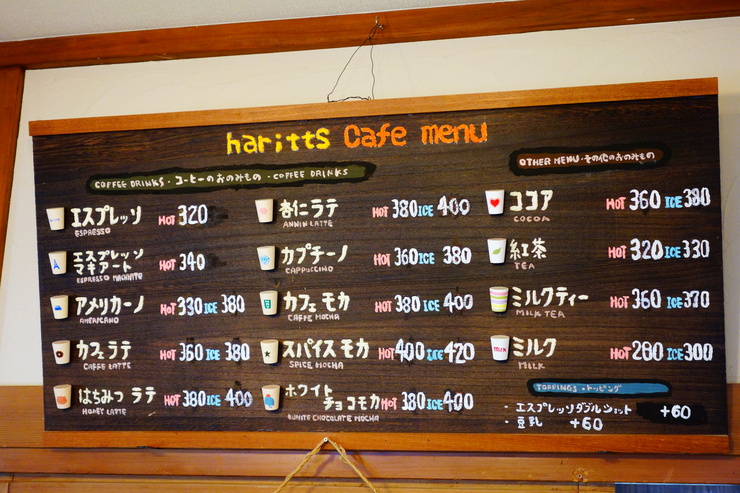 haritts Cafe menu
COFFEE DRINKS・コーヒーのおみもの・COFFEE DRINKS
エスプレッソ HOT 320
ESPRESSO
エスプレッソ
マキアート HOT 340
ESPRESSO MACHIATE
アメリカーノ HOT 330 ICE 380
AMERICANO
カフェラテ HOT 360 ICE 380
CAFFE LATTE
はちみつ ラテ HOT 380 ICE 400
HONEY LATTE
杏仁ラテ HOT 380 ICE 400
ANNIN LATTE
カプチーノ HOT 360 ICE 380
CAPPUCCINO
カフェ モカ HOT 380 ICE 400
CAFFE MOCHA
スパイス モカ HOT 400 ICE 420
SPICE MOCHA
ホワイト
チョコモカ HOT 380 ICE 400
WHITE CHOCOLATE MOCHA
OTHER MENU・その他のおのみもの
ココア HOT 360 ICE 380
COCOA
紅茶 HOT 320 ICE 330
TEA
ミルクティー HOT 360 ICE 370
MILK TEA
ミルク HOT 280 ICE 300
MILK
TOPPINGS・トッピング
・エスプレッソダブルショット +60
・豆乳 +60